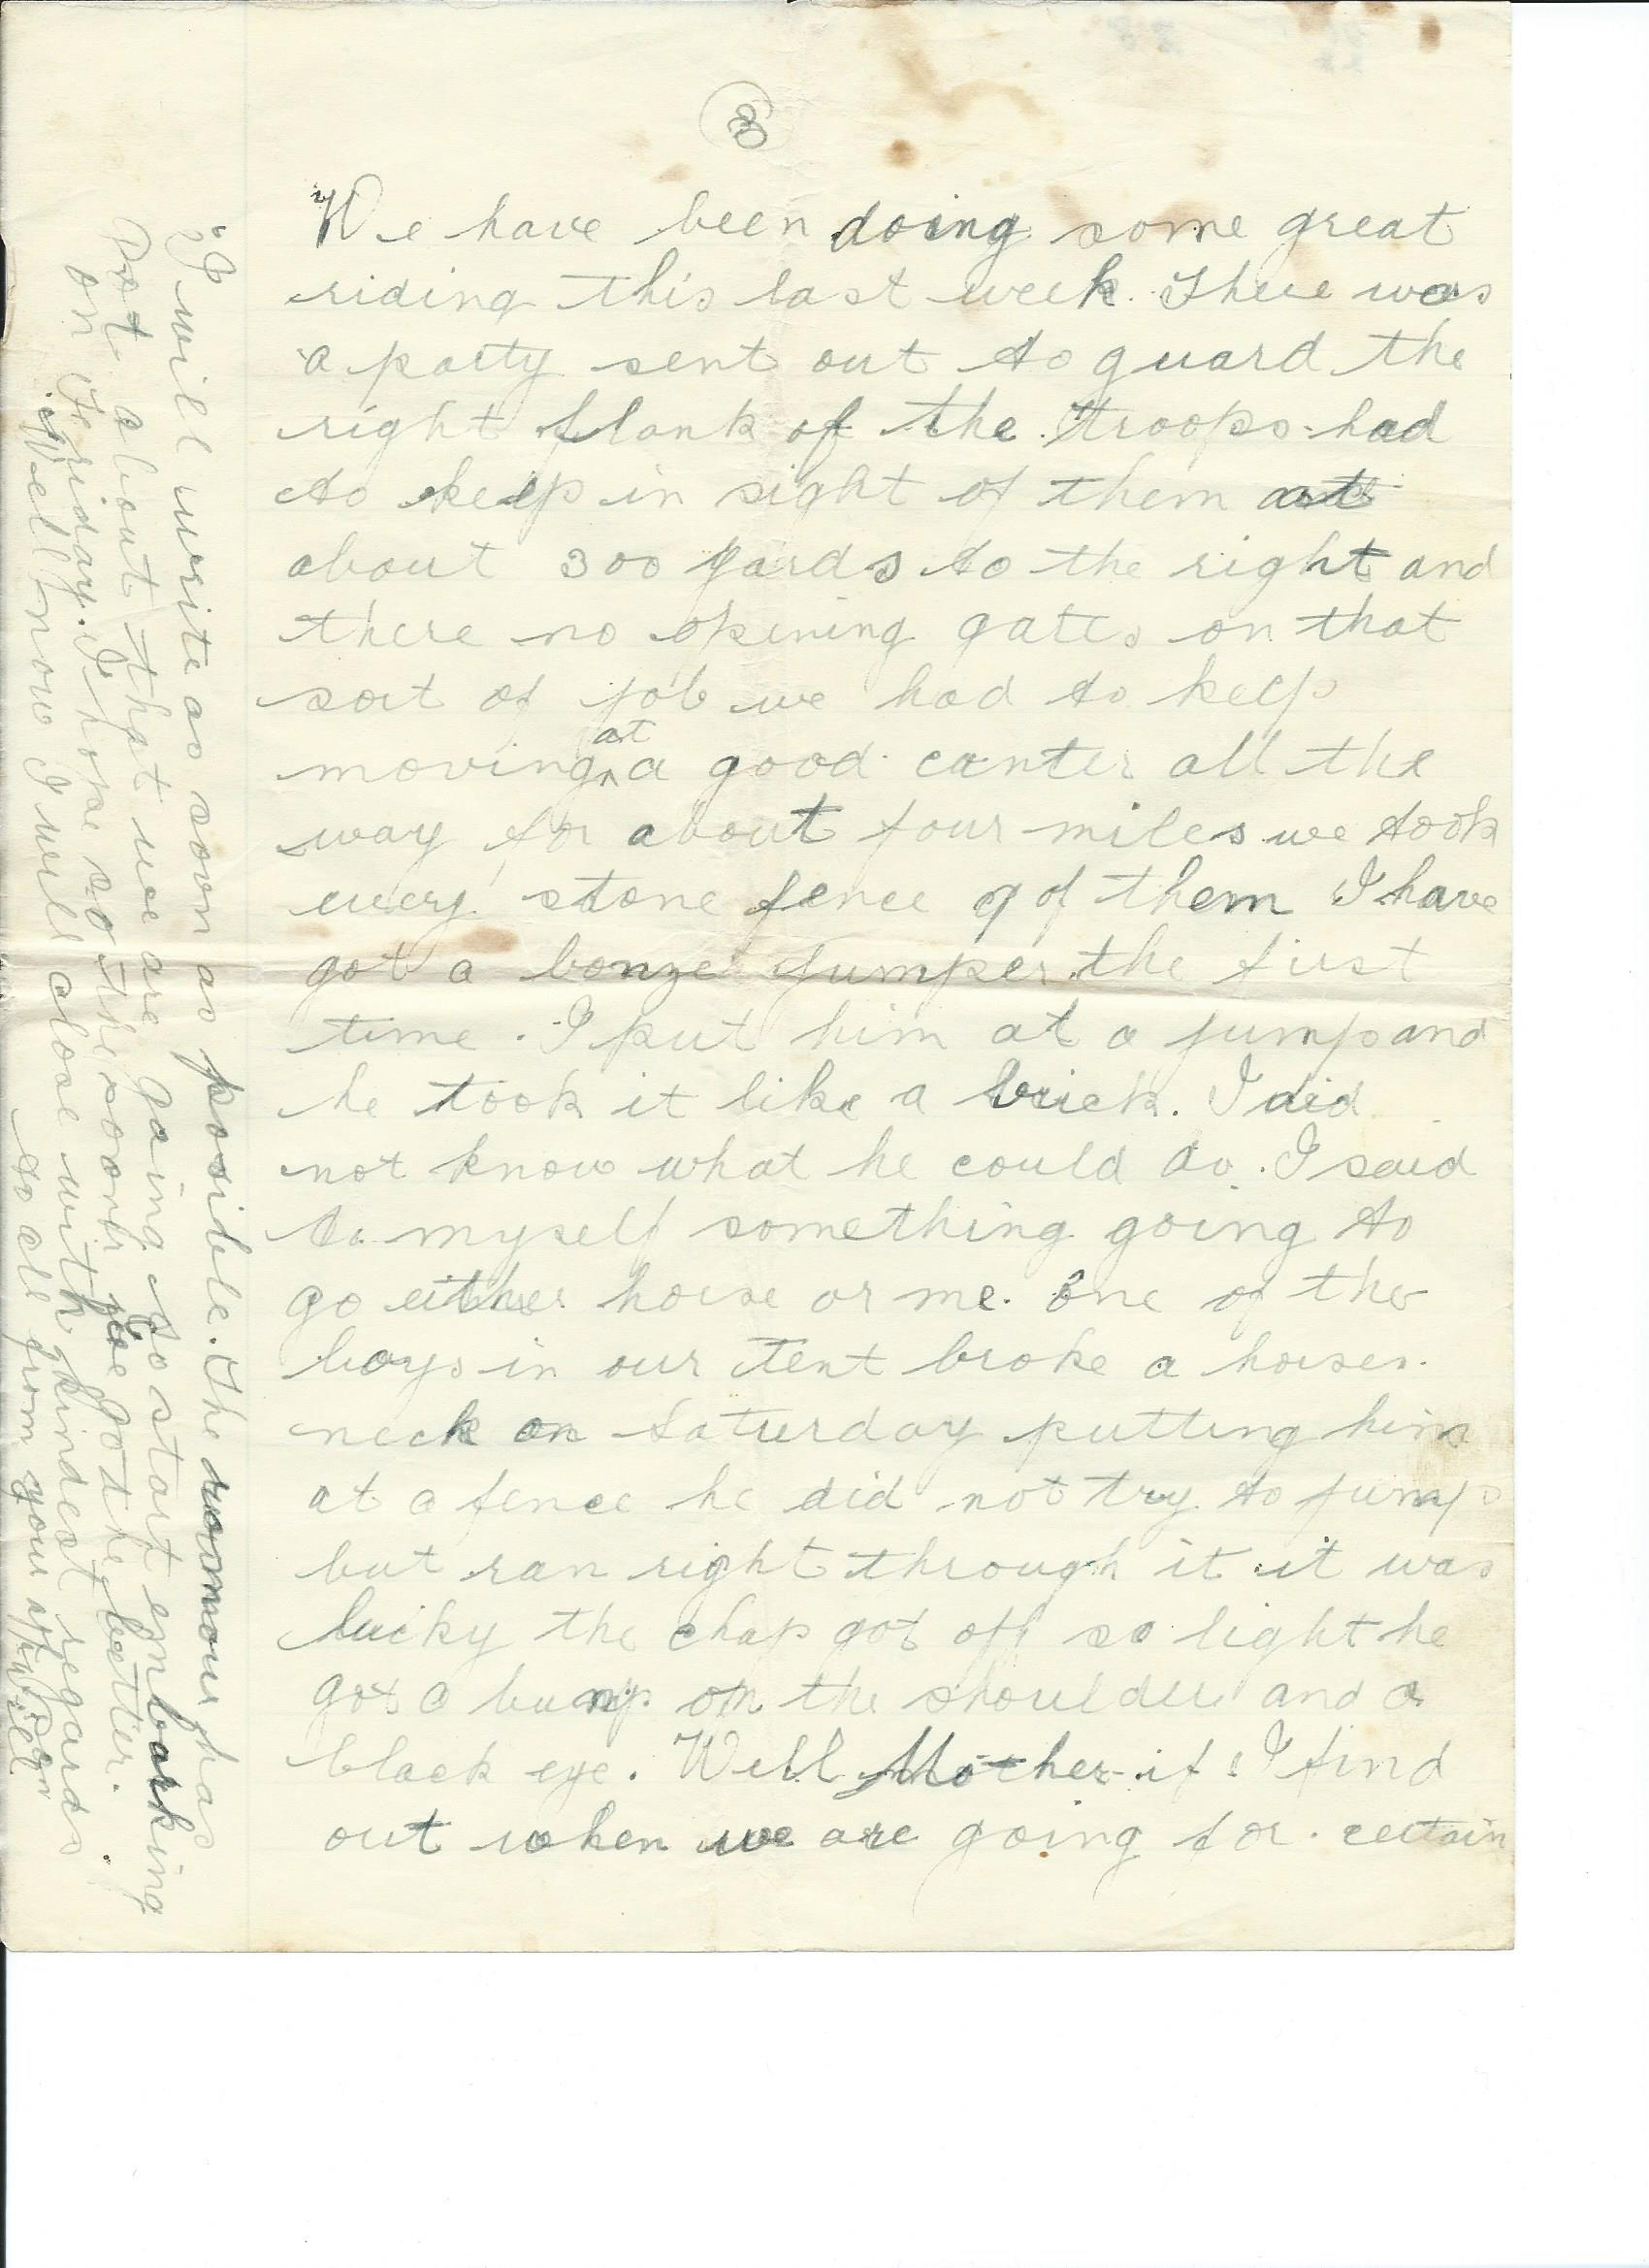 We have been doing some great
riding this last week. There was
a party sent out to guard the
right flank of the troops had
to keep in sight of them at
about 300 yards to the right and
there no opening gates on that
sort of job we had to keep
moving at a good canter all the
way for about four miles we took
every stone fence 9 of them I have
got a bonze jumper the first
time. I put him at a jump and
he took it like a brick. I did
not know what he could do. I said
to myself something going to
go either horse or me. One of the
boys in our tent broke a horses
neck on Saturday putting him
at a fence he did not try to jump
but ran right through it it was
lucky the chap got off so light he
got a bump on the shoulder and a
black eye. Well Mother if I find
out when we are going for certain
I will write as soon as posible. The rumour has
got about that we are going to start embarking
on Feriday. I hope so the sooner we go the better.
Well now I will close with kindest regards
to all from your